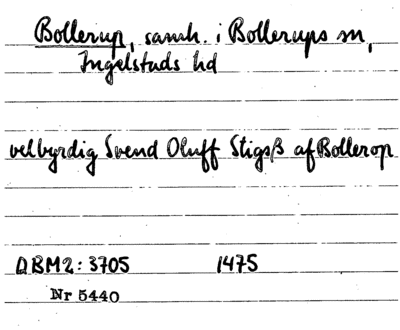 Bollerup, samh. i Bollerups sn,
Ingelstads hd
velbyrdig Svend Oluff Stigsß af Bollerop
DBM2: 3705 1475
Nr 5440